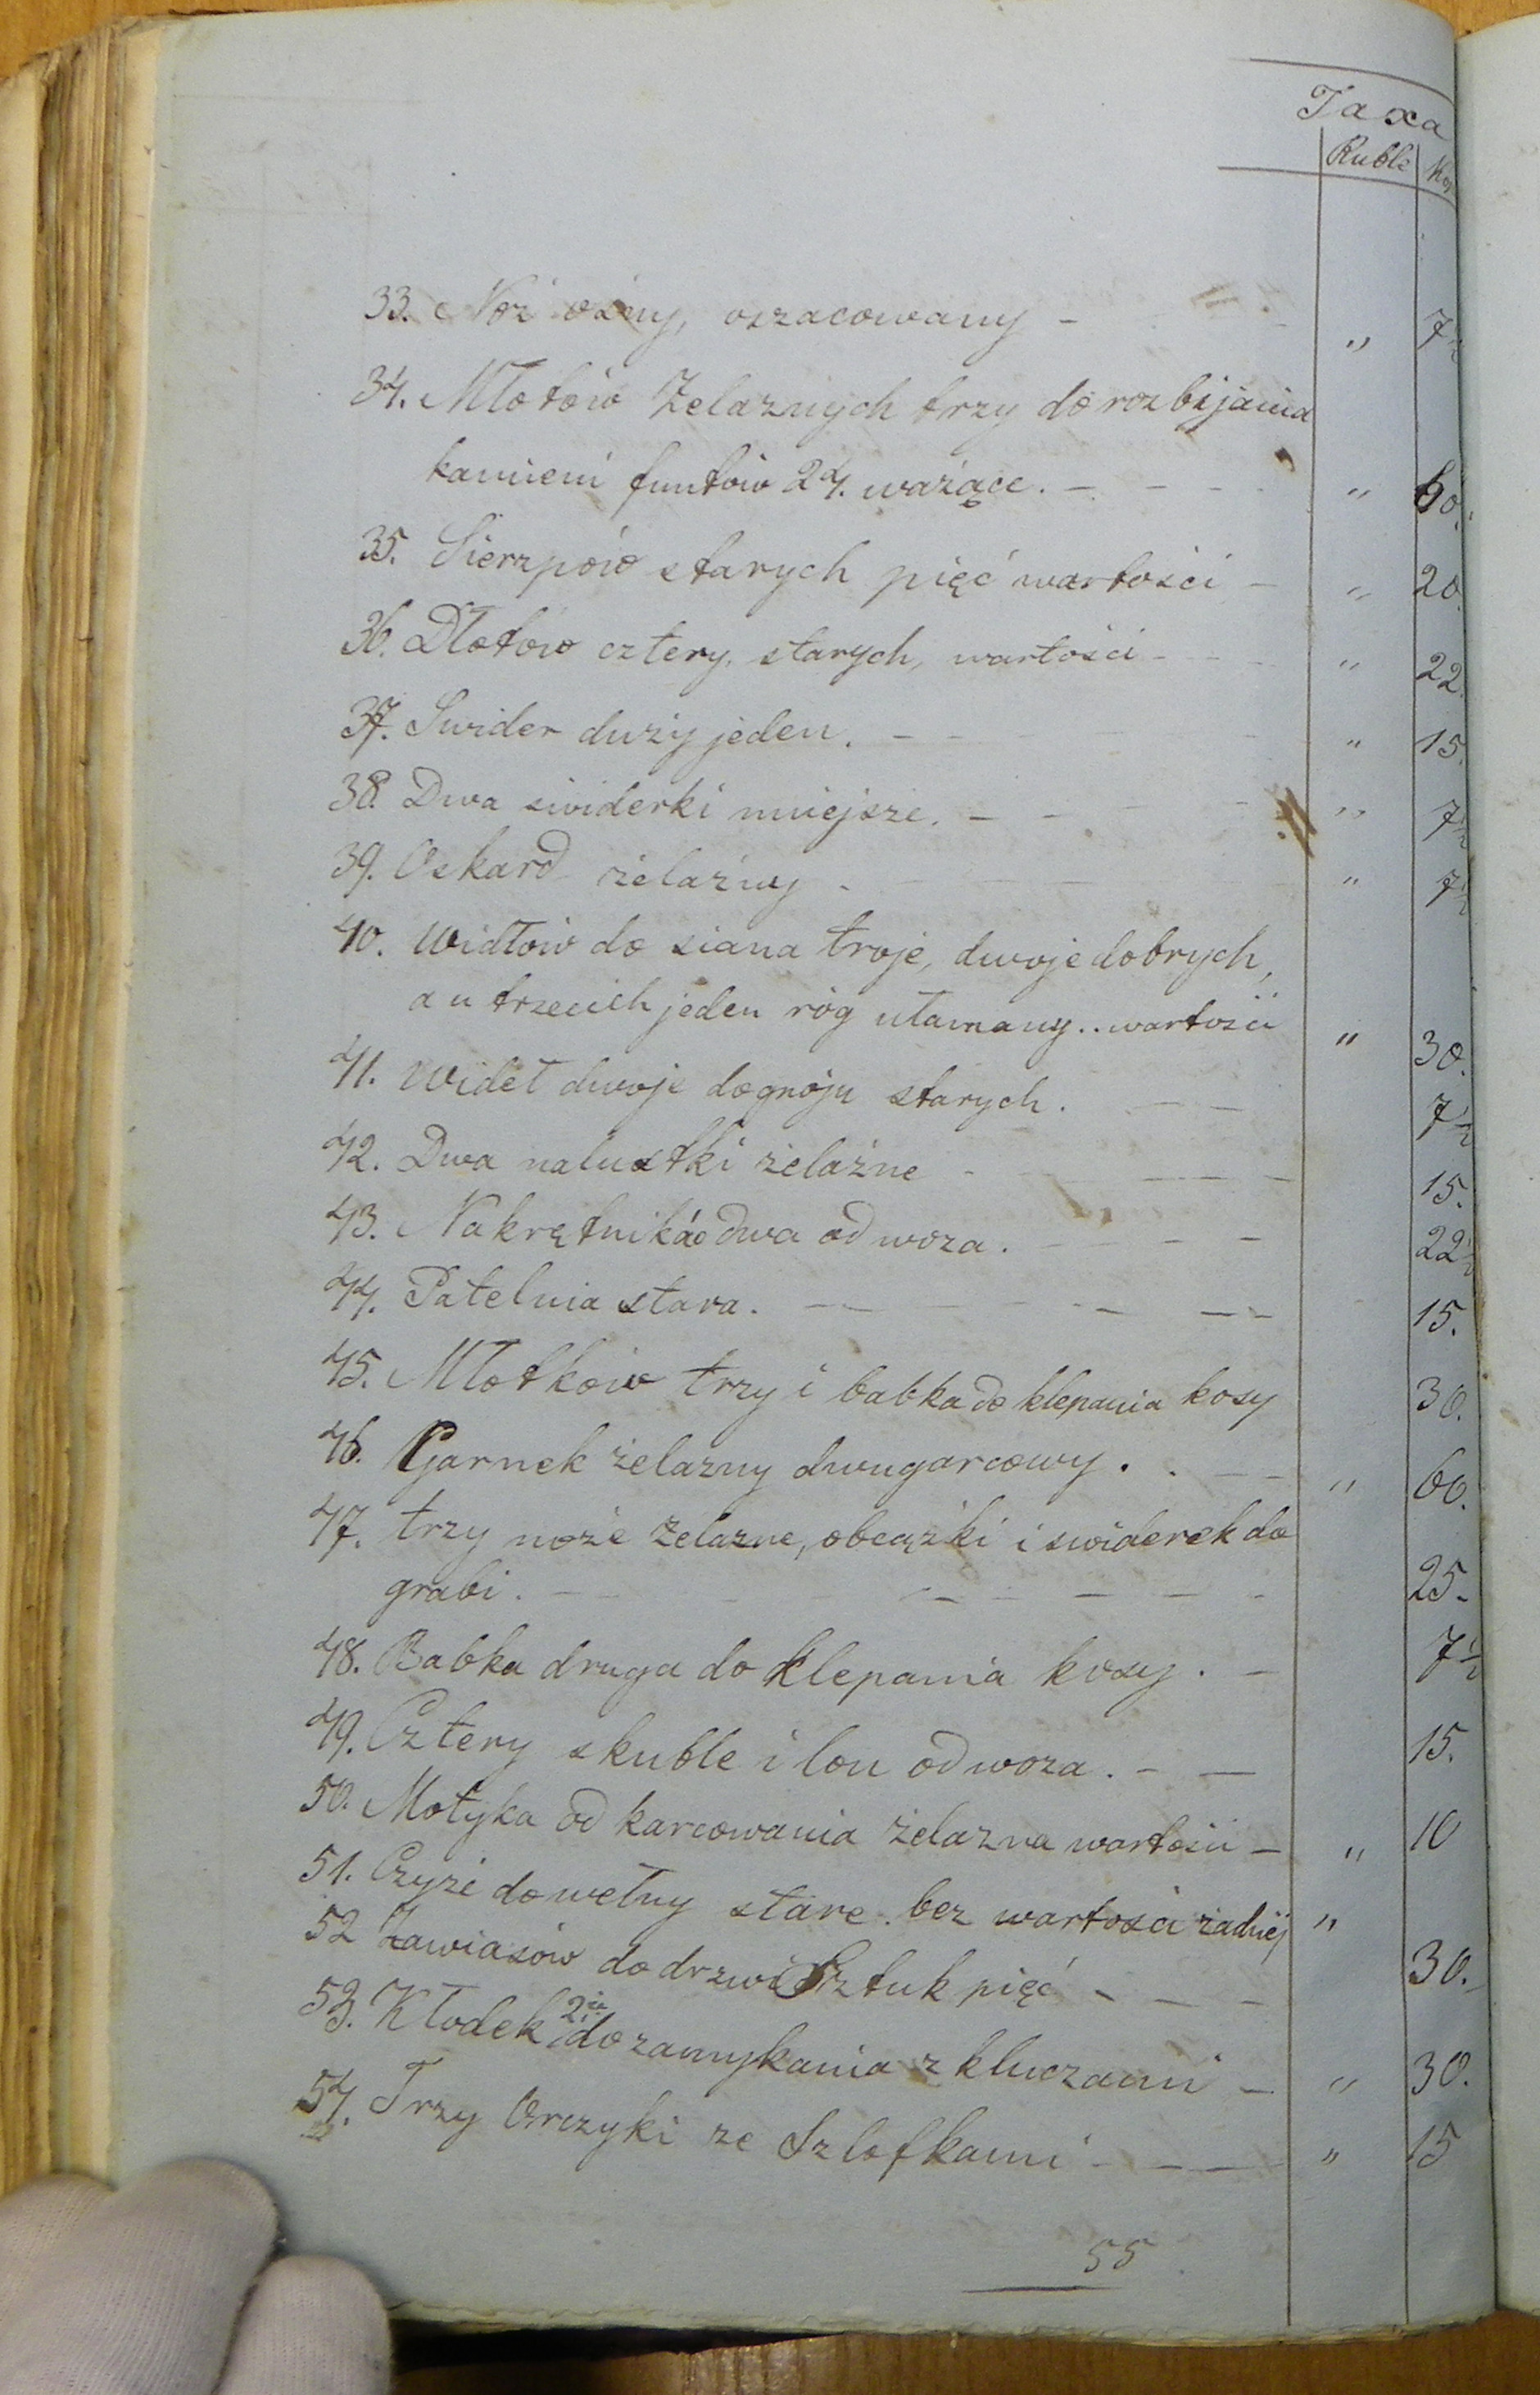 Taxa
Ruble Kop
33. Noż oszacowany - " 7½
34. Młotów Żelaznych trzy do rozbijania
kamieni funtów 24. ważące. - - - - " 60.
35. Sierzpów starych pięć wartości - " 20.
36. Dłotow cztery, starych, wartości - - - " 22.
37. Swider duży jeden. - - - " 15.
38. Dwa swiderki mniejsze. - - - - " 7½
39. Oskard żelazny - " 7½
40. Widłow do siana troje, dwoje dobrych,
a u trzecich jeden róg ułamany.. wartości " 30.
41. Wideł dwoje do gnoju starych. - - 7½
42. Dwa nalustki żelazne - - - - 15.
43. Nakrętników dwa od woza. - - - - 22½
44. Patelnia stara. - - - - - - - 15.
45. Młotkow trzy i babka do klepania kosy 30.
46. Garnek żelazny dwugarcowy. . - - " 60.
47. trzy noże Żelazne, obcążki i swiderek do
grabi. - - - - - - - 25.
48. Babka druga do klepania kosy. - 7½
49. Cztery skuble i lon od woza. - - 15.
50. Motyka od karcowania żelazna wartości - " 10
51. do wełny stare. bez wartości żadnéj "
52 Zawiasów do drzwi Sztuk pięć - - - 30.
53. Kłodek 2ie do zamykania z kluczami - " 30.
54. Trzy Orczyki ze Szlofkami - - - " 15
55